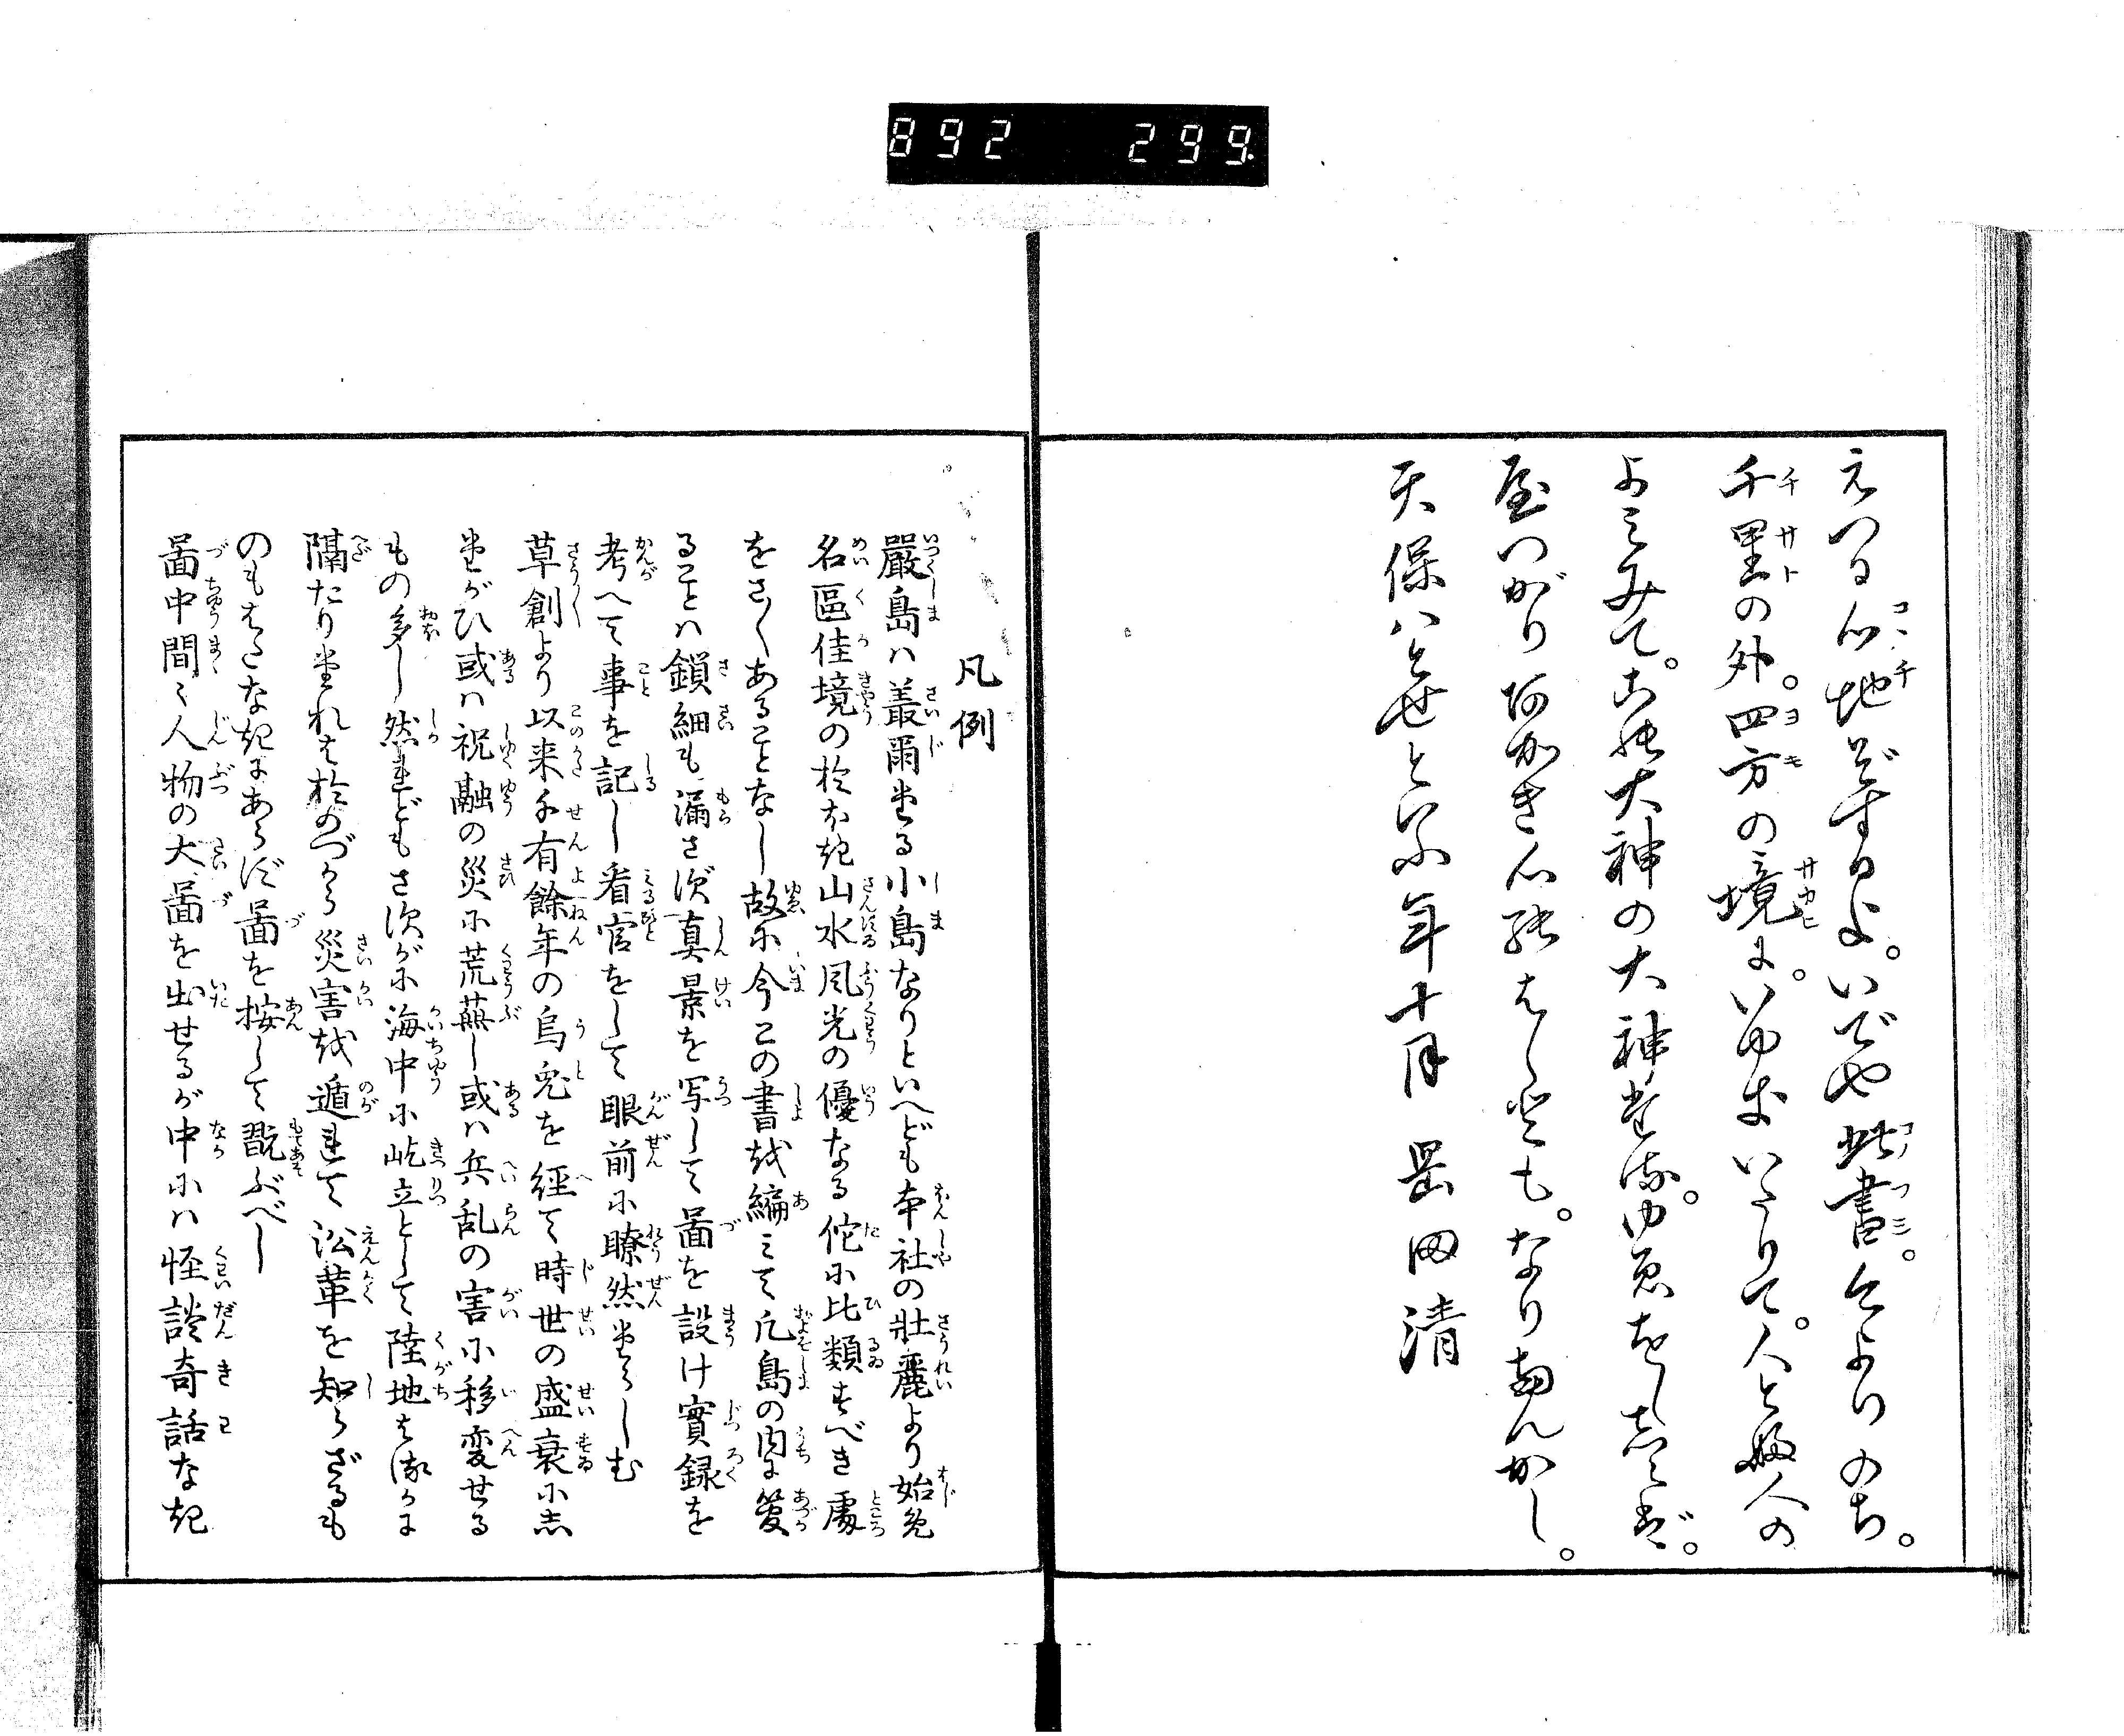 892 299
えつる心地ぞするよ。いでや此書。今よりのち。
千里の外。四方の境に。いゆきいたりて。人と婦人の
よこみて。この大神の大神たる。ゆゑをししらば。
屋つがりあかき心のはしをも。なりなんかし。
天保八とせといふ年十月 岡田清
凡例
嚴島ハ叢爾たる小島なりといへども本社の壮麗より始免
名區佳境のおほき山水風光の優なる佗に比類すべき處
をさ〱あることなし故に今この書を編ミて凡島の内に箋
ることハ鎖細も漏さず真景を写して啚を設け實録を
考へて事を記し看官をして眼前に瞭然たらしむ
草創より以来千有餘年の烏兎を經て時世の盛衰にし
たがひ或ハ祝融の災に荒蕪し或ハ兵乱の害に移変せる
もの多し然れどもさすがに海中に屹立として陸地をはるかに
隔たりたればおのづから災害を遁れて沿革を知らざるも
のもすくなきにあらず啚を按して翫ぶべし
啚中間〻人物の大啚を出せるが中にハ怪談奇話なき